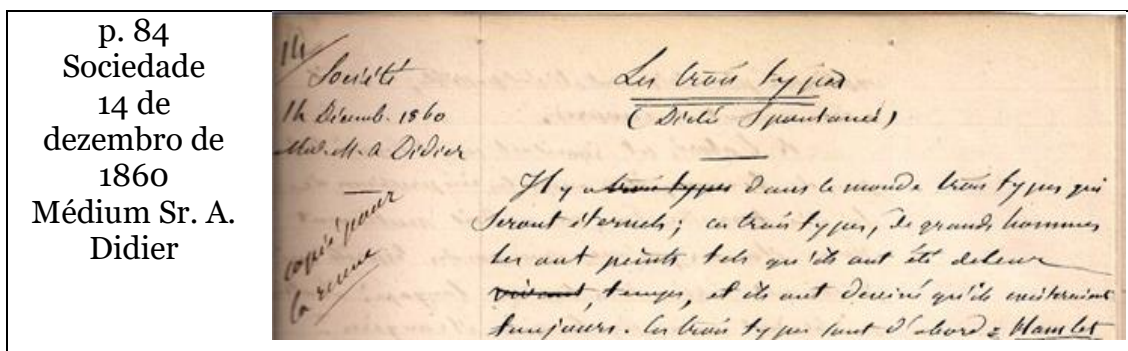 p. 84
Sociedade
14 de
dezembro de
1860
Médium Sr. A.
Didier
14
Société
14 Décemb. 1860
Méd. M. A Didier
copié pour
la revue
Les trois types
(Dictée Spontanée)
Il y a trois types dans le monde trois types qui
seront éternels ; ces trois types, de grands hommes
les ont peints tels qu'ils ont été de leur
vivant, temps, et ils ont deviné qu'ils existeraient
toujours. Ces trois types sont d'abord : Hamlet